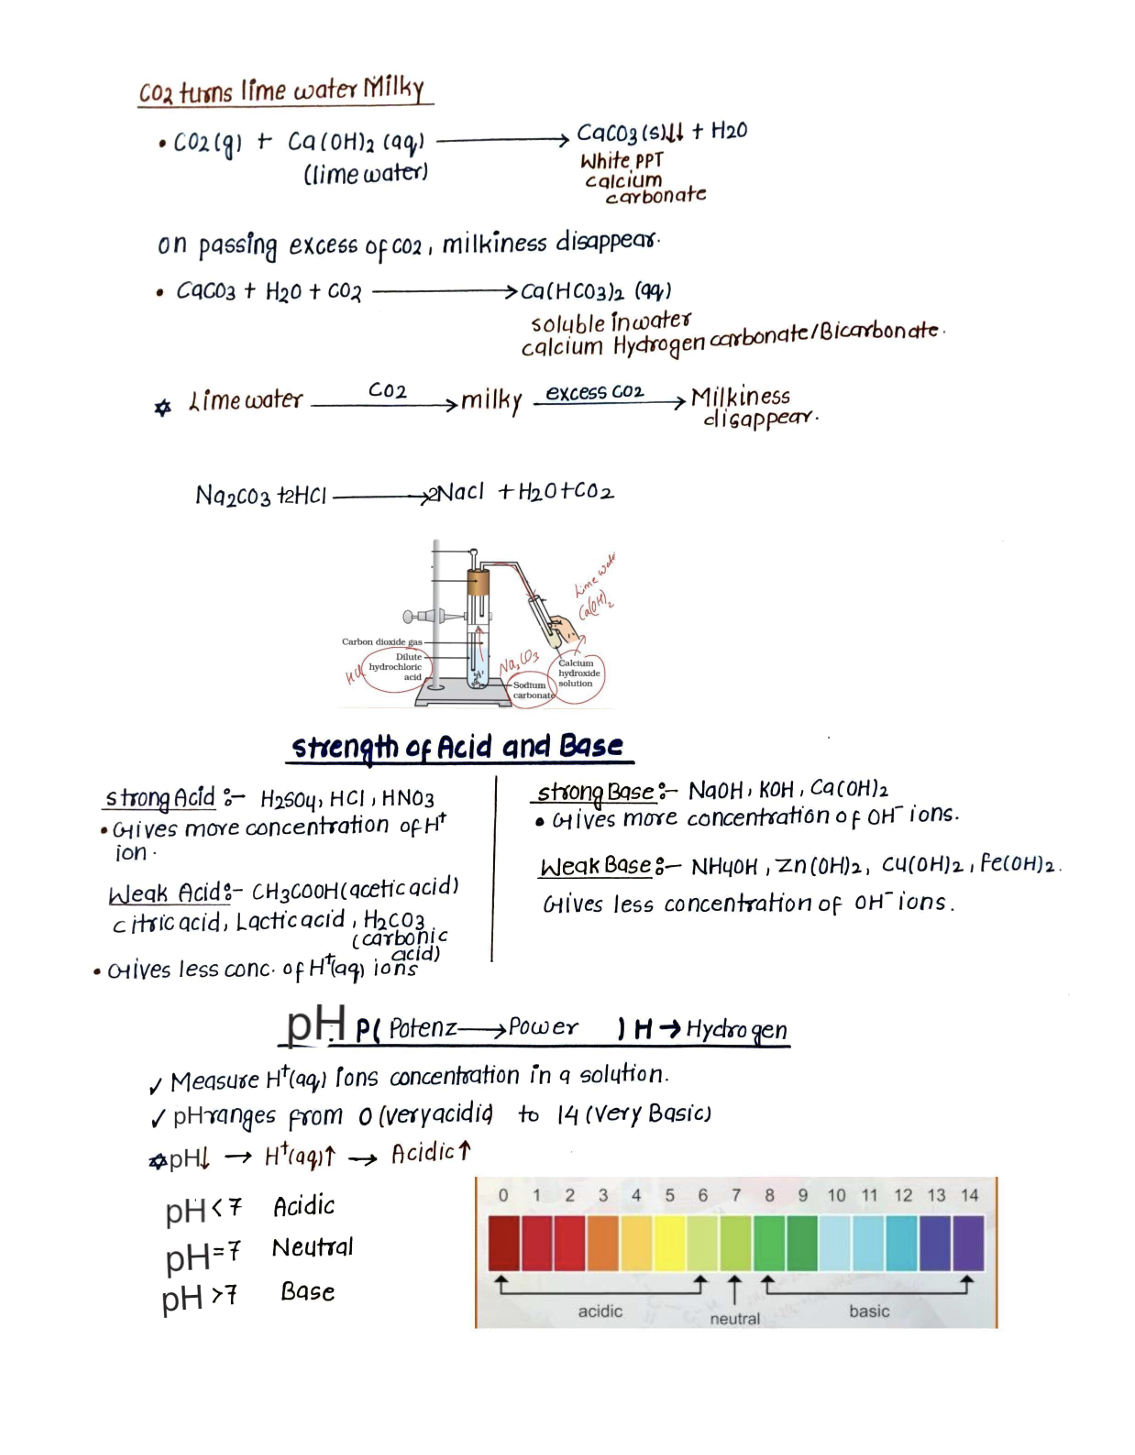 CO2 turns lime water Milky
• CO2(g) + Ca(OH)2 (aq) ⟶ CaCO3(s)↓↓ + H2O
(lime water)
White PPT
calcium
carbonate
on passing excess of CO2, milkiness disappear.
• CaCO3 + H2O + CO2 ⟶ Ca(HCO3)2 (aq)
soluble in water
calcium Hydrogen carbonate/Bicarbonate.
✡ Lime water —CO2→ milky —excess CO2→ Milkiness
disappear.
Na2CO3 +2HCl ⟶ 2Nacl + H2O+CO2
Lime water
Ca(OH)2
Carbon dioxide gas
Dilute
hydrochloric
acid
HCl
Na2CO3
Sodium
carbonate
Calcium
hydroxide
solution
strength of Acid and Base
strong Acid :- H2SO4, HCl, HNO3
• Gives more concentration of H+
ion.
Weak Acid:- CH3COOH(acetic acid)
citric acid, Lactic acid, H2CO3
(carbonic
acid)
• Gives less conc. of H+(aq) ions
strong Base:- NaOH, KOH, Ca(OH)2
• Gives more concentration of OH- ions.
Weak Base:- NH4OH, Zn(OH)2, Cu(OH)2, Fe(OH)2.
Gives less concentration of OH- ions.
pH P( Potenz ⟶ Power ) H → Hydrogen
✓ Measure H+(aq) ions concentration in a solution.
✓ pH ranges from 0 (very acidic) to 14 (Very Basic)
✡ pH↓ → H+(aq)↑ → Acidic↑
pH < 7 Acidic
pH = 7 Neutral
pH > 7 Base
0 1 2 3 4 5 6 7 8 9 10 11 12 13 14
acidic
neutral
basic